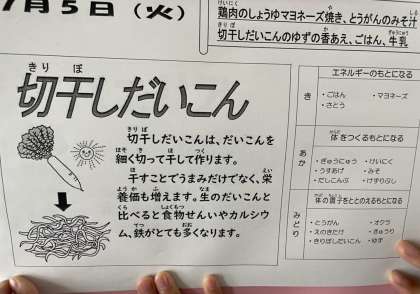 7月5日（火）
鶏肉のしょうゆマヨネーズ焼き、とうがんのみそ汁
切干しだいこんのゆずの香あえ、ごはん、牛乳
切干しだいこん
切干しだいこんは、だいこんを
細く切って干して作ります。
干すことでうまみだけでなく、栄
養価も増えます。生のだいこんと
比べると食物せんいやカルシウ
ム、鉄がとても多くなります。
エネルギーのもとになる
き
・ごはん ・マヨネーズ
・さとう
体をつくるもとになる
あか
・ぎゅうにゅう ・けいにく
・うすあげ ・みそ
・だしこんぶ ・けずりぶし
体の調子をととのえるもとになる
みどり
・とうがん ・オクラ
・えのきたけ ・きゅうり
・きりぼしだいこん ・ゆず